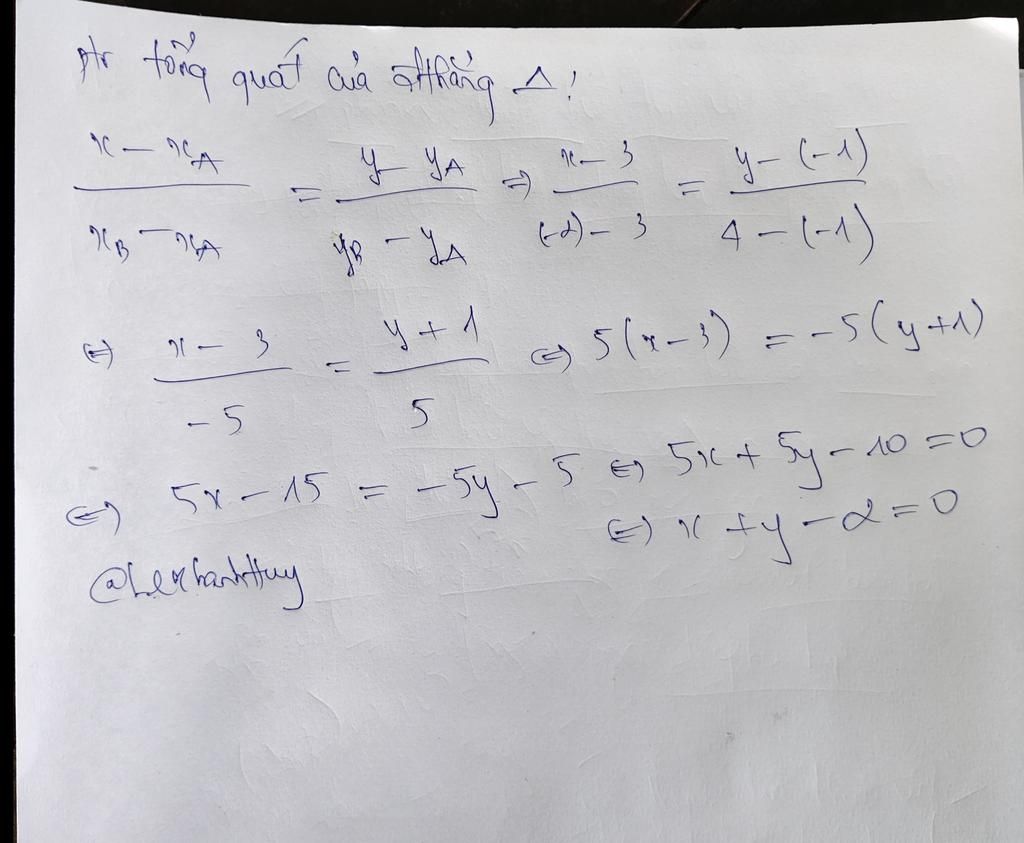 ptr tổng quát của đthẳng Δ:
(x - x_A)/(x_B - x_A) = (y - y_A)/(y_B - y_A) ⇒ (x - 3)/((-2) - 3) = (y - (-1))/(4 - (-1))
⇔ (x - 3)/(-5) = (y + 1)/5 ⇔ 5(x - 3) = -5(y + 1)
⇔ 5x - 15 = -5y - 5 ⇔ 5x + 5y - 10 = 0
⇔ x + y - 2 = 0
@LekhanhHuy